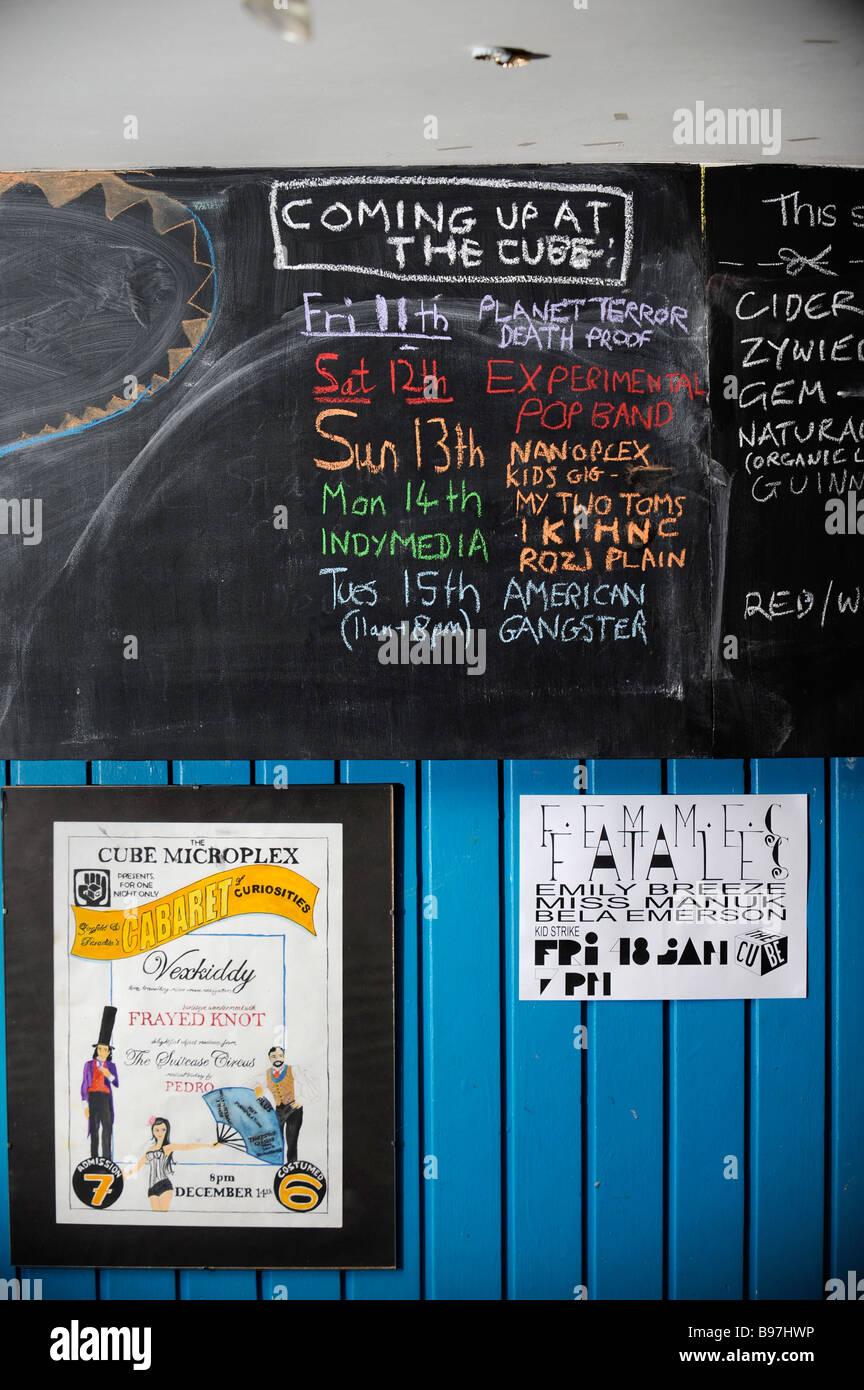 COMING UP AT
THE CUBE:
Fri 11th PLANET TERROR
DEATH PROOF
Sat 12th EXPERIMENTAL
POP BAND
Sun 13th NANOPLEX
KIDS GIG -
MY TWO TOMS
IKIHNC
ROZI PLAIN
Mon 14th
INDYMEDIA
Tues 15th AMERICAN
(11am + 8pm) GANGSTER
This s
CIDER
ZYWIE
GEM -
NATURA
(ORGANIC L
GUINN
RED/W
THE
CUBE MICROPLEX
PRESENTS
FOR ONE
NIGHT ONLY
CABARET of
CURIOSITIES
Vexkiddy
FRAYED KNOT
The Suitcase Circus
PEDRO
8pm
DECEMBER 14th
ADMISSION
7
COSTUMED
6
FEMMES
FATALES
EMILY BREEZE
MISS MANUK
BELA EMERSON
KID STRIKE
FRI 18 JAN
7 PM
THE
CUBE
alamy
Image ID: B97HWP
www.alamy.com